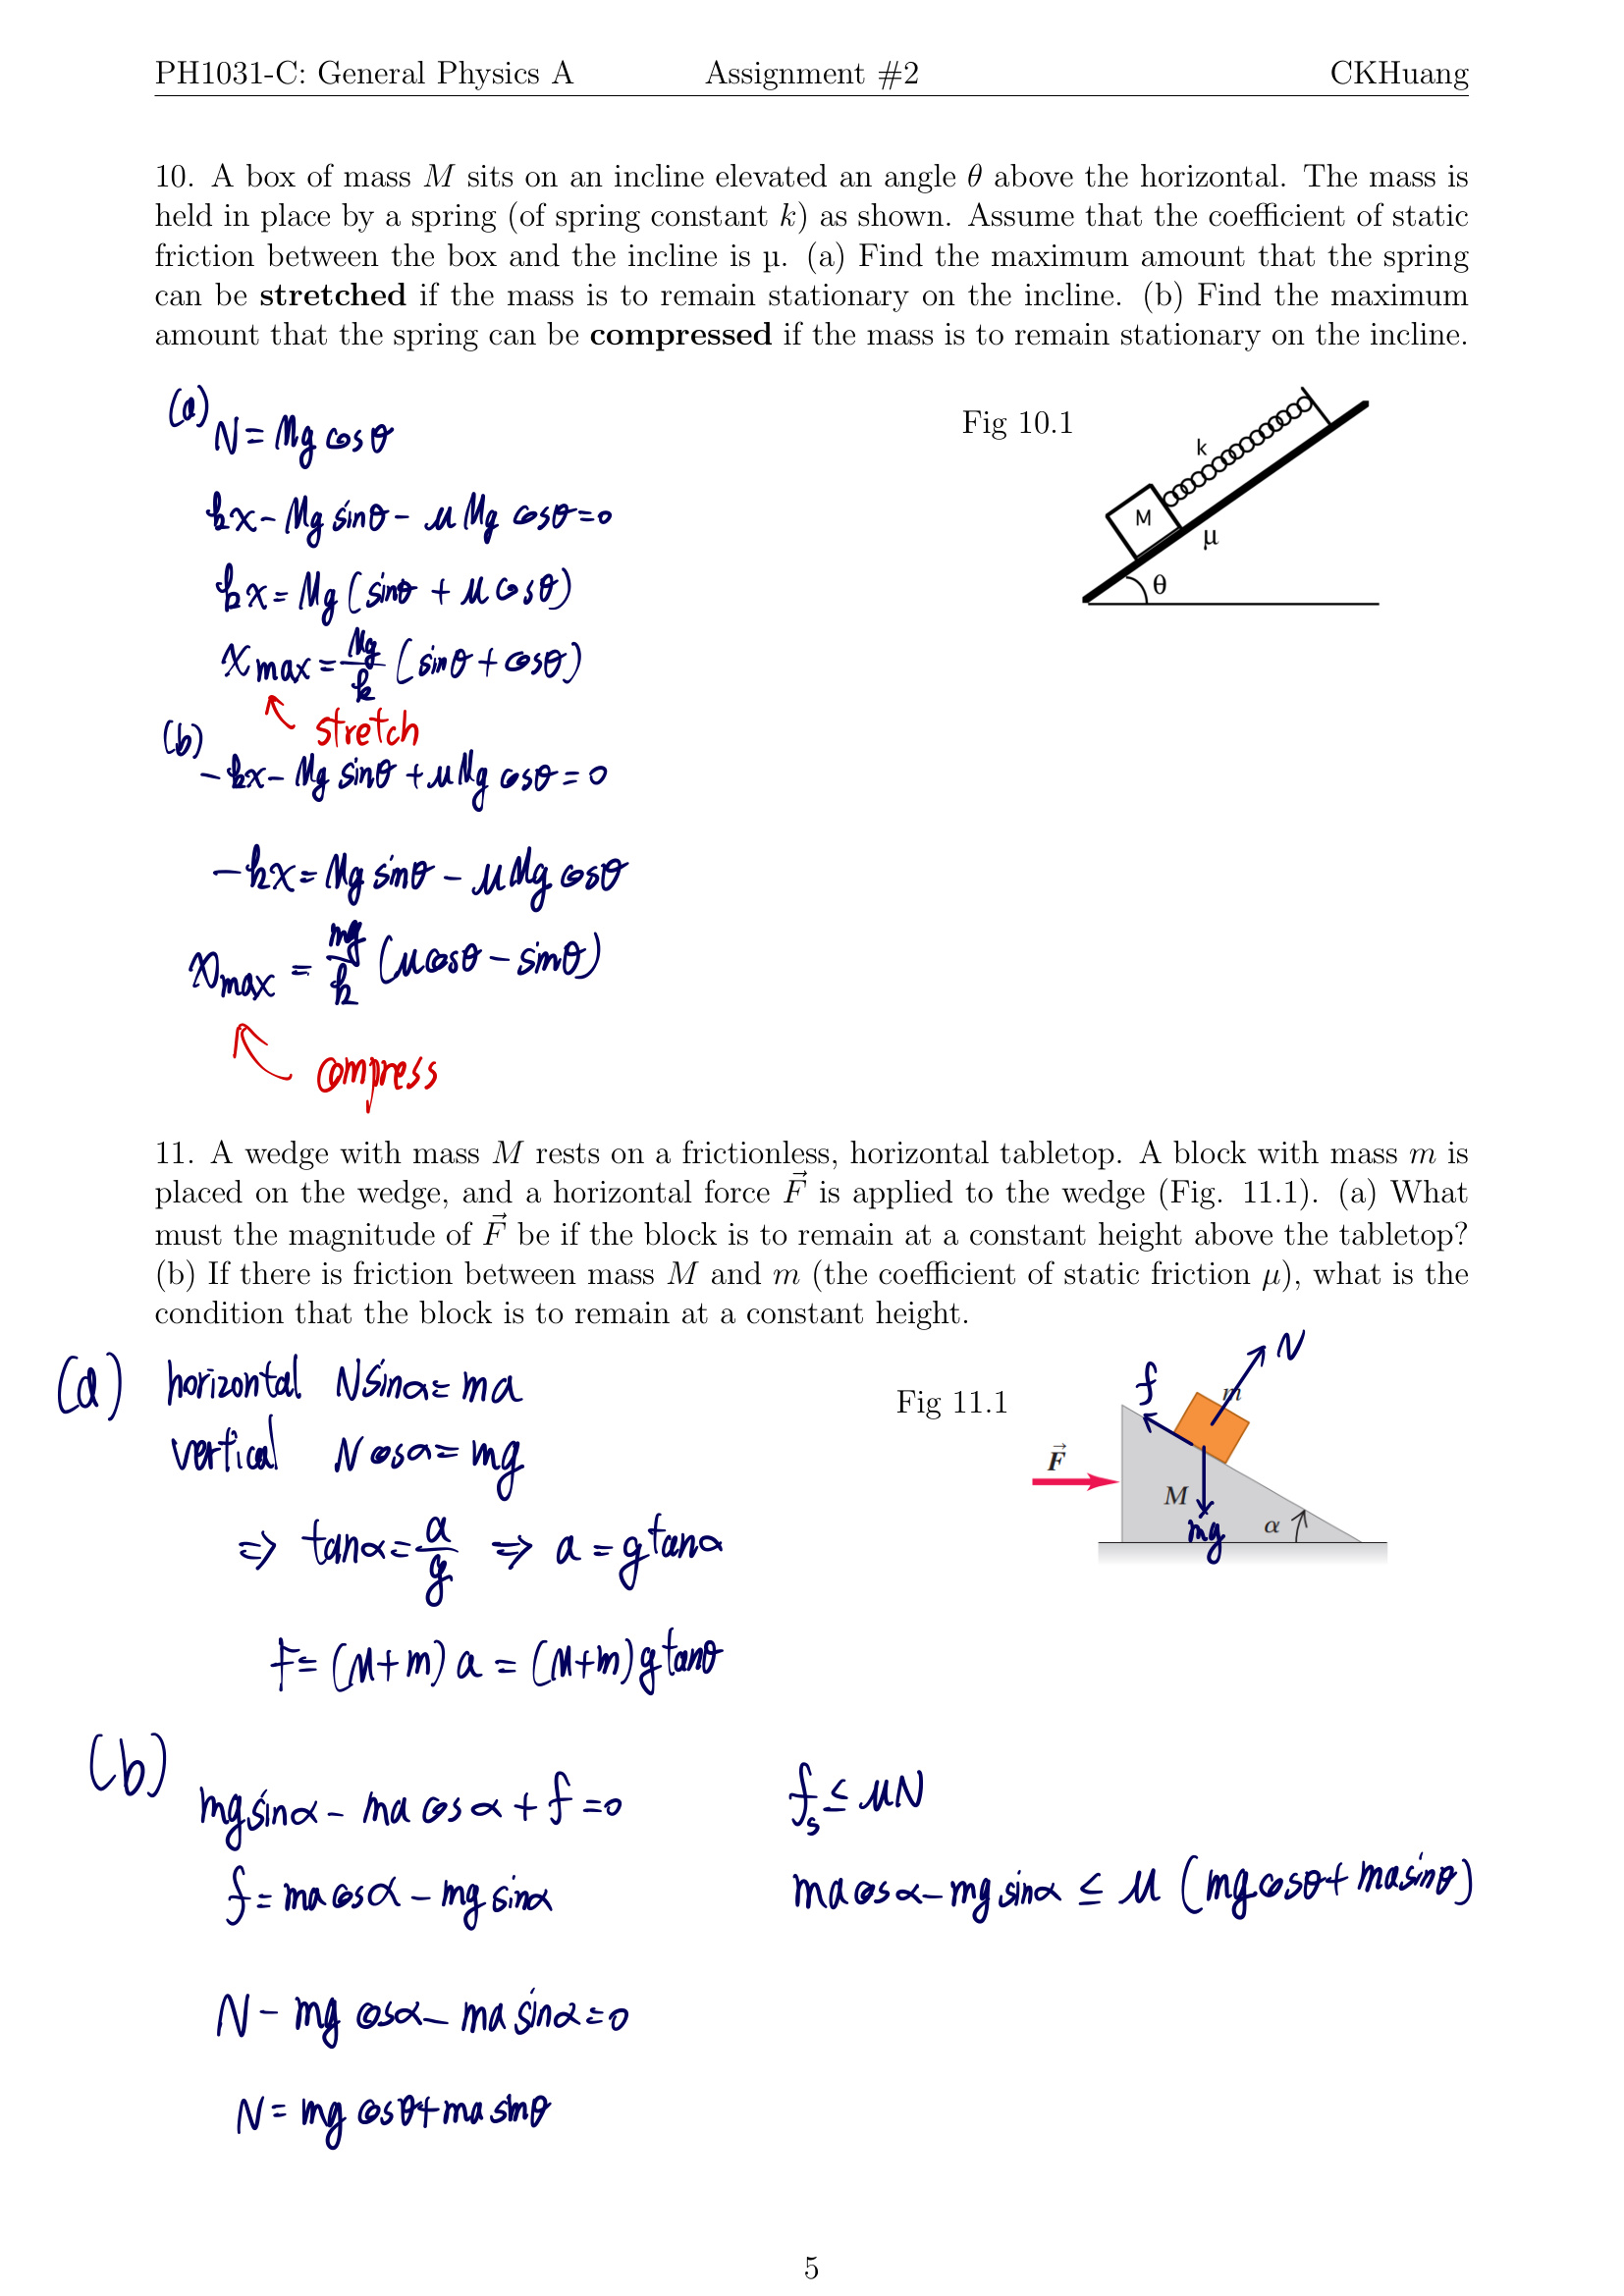 PH1031-C: General Physics A Assignment #2 CKHuang
10. A box of mass M sits on an incline elevated an angle θ above the horizontal. The mass is
held in place by a spring (of spring constant k) as shown. Assume that the coefficient of static
friction between the box and the incline is µ. (a) Find the maximum amount that the spring
can be stretched if the mass is to remain stationary on the incline. (b) Find the maximum
amount that the spring can be compressed if the mass is to remain stationary on the incline.
(a)
N = Mg cosθ
kx - Mg sinθ - μ Mg cosθ = 0
kx = Mg (sinθ + μ cosθ)
x max = Mg/k (sinθ + cosθ)
stretch
Fig 10.1
k
M
μ
θ
(b)
- kx - Mg sinθ + μ Mg cosθ = 0
- kx = Mg sinθ - μ Mg cosθ
x max = mg/k (μ cosθ - sinθ)
compress
11. A wedge with mass M rests on a frictionless, horizontal tabletop. A block with mass m is
placed on the wedge, and a horizontal force F⃗ is applied to the wedge (Fig. 11.1). (a) What
must the magnitude of F⃗ be if the block is to remain at a constant height above the tabletop?
(b) If there is friction between mass M and m (the coefficient of static friction μ), what is the
condition that the block is to remain at a constant height.
(a) horizontal N sinα = ma
vertical N cosα = mg
⇒ tanα = a/g ⇒ a = g tanα
F = (M+m) a = (M+m) g tanθ
Fig 11.1
N
f
m
F⃗
M
mg
α
(b)
mg sinα - ma cosα + f = 0
f = ma cosα - mg sinα
N - mg cosα - ma sinα = 0
N = mg cosθ + ma sinθ
fs ≤ μN
ma cosα - mg sinα ≤ μ (mg cosθ + ma sinθ)
5